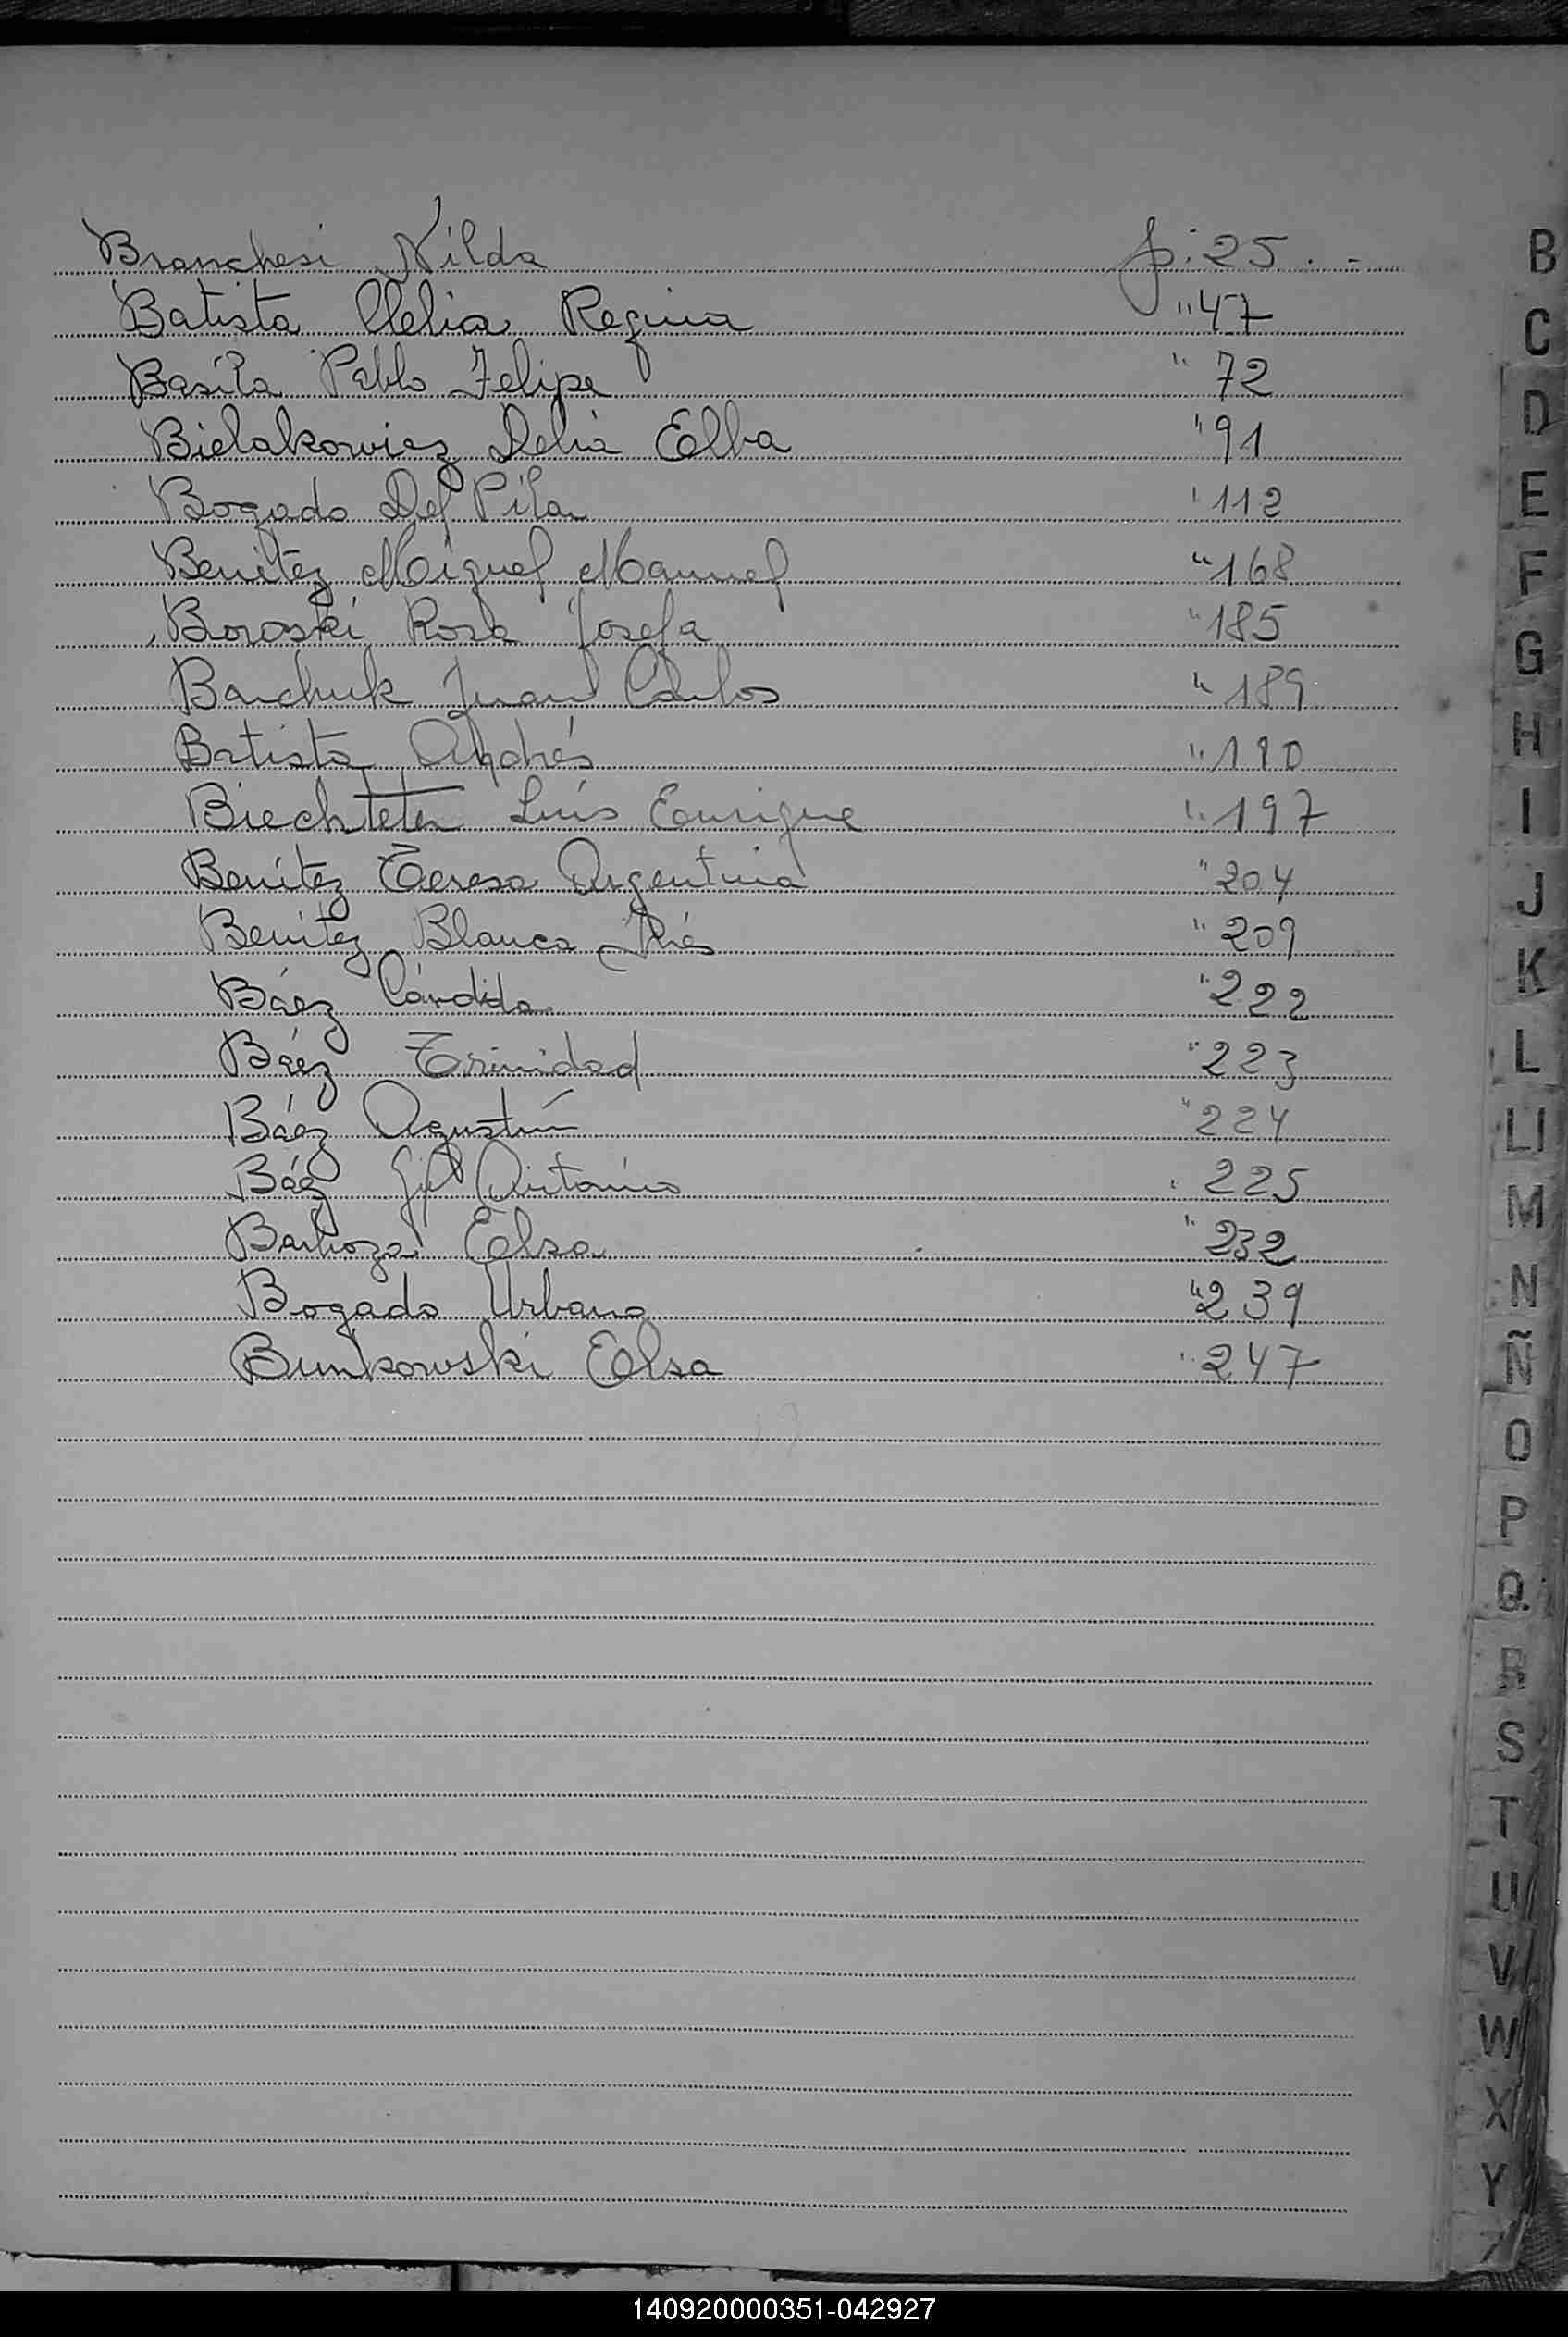 Branchesi Nilda p: 25. -
Batista Clelia Regina " 47
Basila Pablo Felipe " 72
Bielakowicz Delia Elba " 91
Bogado Del Pilar " 112
Benitez Miguel Manuel " 168
Boroski Rosa Josefa " 185
Barchuk Juan Carlos " 189
Batista Andrés " 190
Biechteter Luis Enrique " 197
Benítez Teresa Argentina " 204
Benitez Blanca Inés " 209
Báez Cándida " 222
Báez Trinidad " 223
Báez Agustín " 224
Báez Gil Antonio " 225
Barboza Elsa " 232
Bogado Urbano " 239
Bunkowski Elsa " 247
B
C
D
E
F
G
H
I
J
K
L
Ll
M
N
Ñ
O
P
Q
R
S
T
U
V
W
X
Y
Z
140920000351-042927